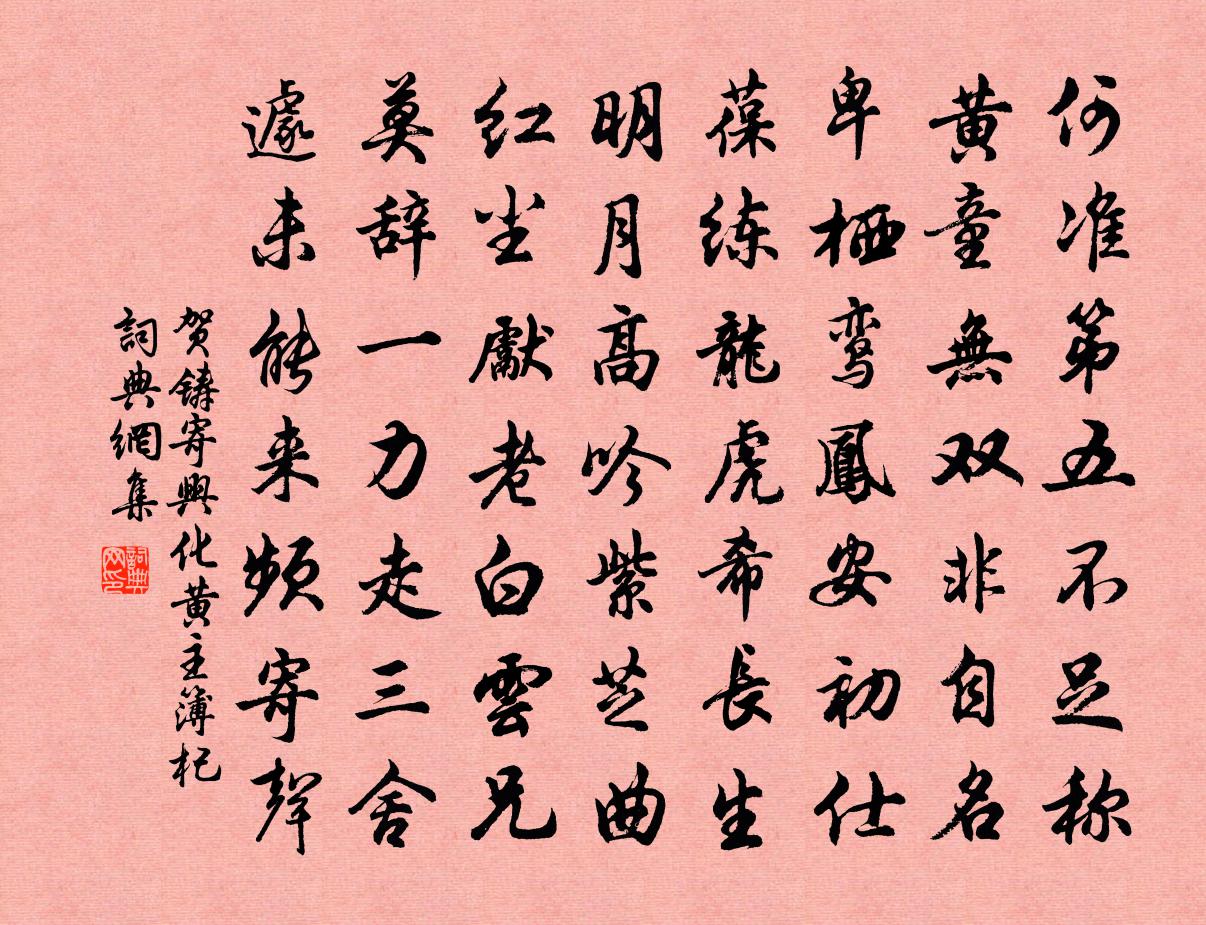 何准第五不足称
黄童無双非自名
卑栖鸾鳳安初仕
葆练龍虎希長生
明月高吟紫芝曲
红尘獻老白雲兄
莫辞一力走三舍
遽未能来频寄聲
贺铸寄興化黄主簿杞
詞典網集
詞典网印